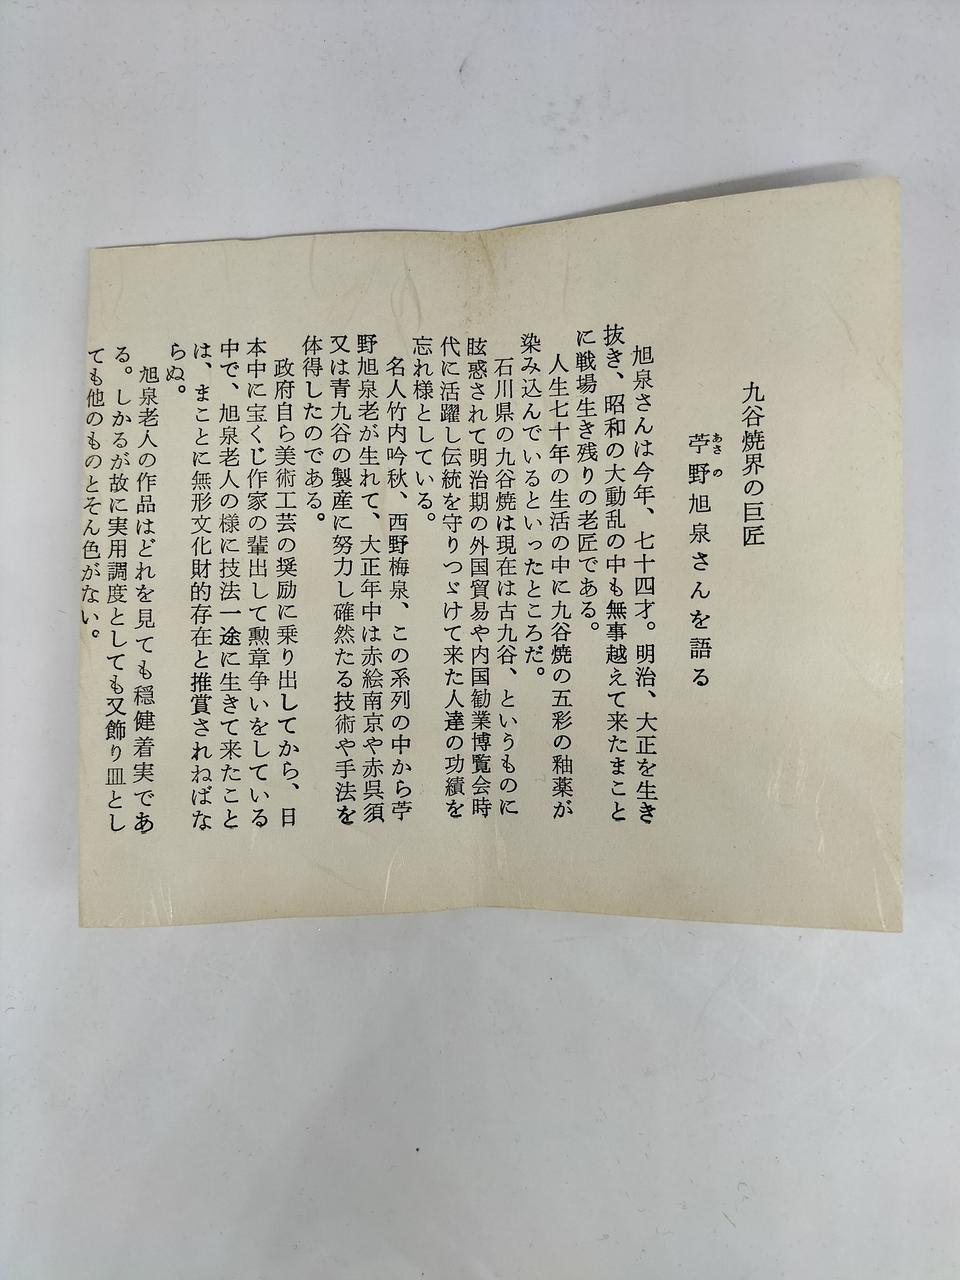 九谷焼界の巨匠
苧野旭泉さんを語る
あさの
旭泉さんは今年、七十四才。明治、大正を生き
抜き、昭和の大動乱の中も無事越えて来たまこと
に戦場生き残りの老匠である。
人生七十年の生活の中に九谷焼の五彩の釉薬が
染み込んでいるといったところだ。
石川県の九谷焼は現在は古九谷、というものに
眩惑されて明治期の外国貿易や内国勧業博覧会時
代に活躍し伝統を守りつゞけて来た人達の功績を
忘れ様としている。
名人竹内吟秋、西野梅泉、この系列の中から苧
野旭泉老が生れて、大正年中は赤絵南京や赤呉須
又は青九谷の製産に努力し確然たる技術や手法を
体得したのである。
政府自ら美術工芸の奨励に乗り出してから、日
本中に宝くじ作家の輩出して勲章争いをしている
中で、旭泉老人の様に技法一途に生きて来たこと
は、まことに無形文化財的存在と推賞されねばな
らぬ。
旭泉老人の作品はどれを見ても穏健着実であ
る。しかるが故に実用調度としても又飾り皿とし
ても他のものとそん色がない。